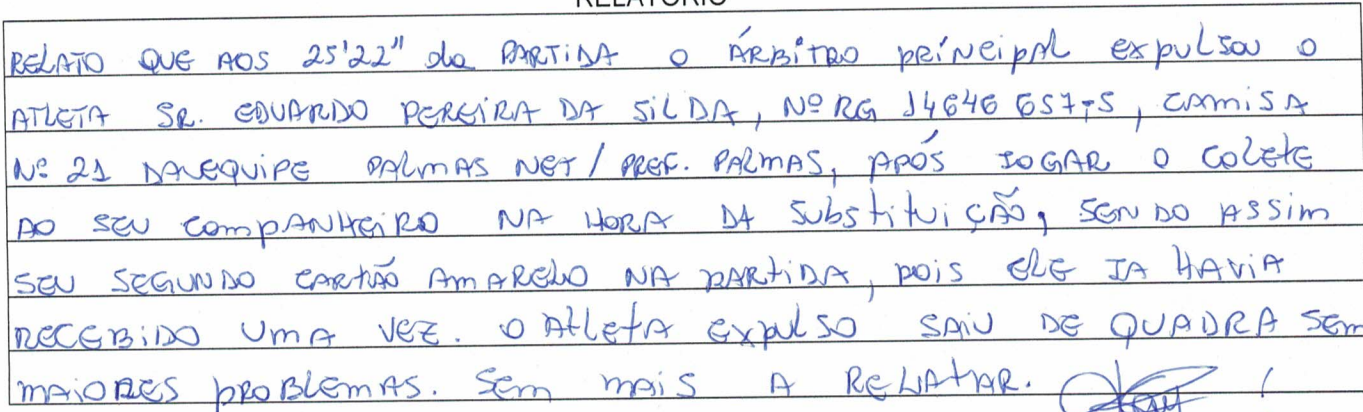 RELATÓRIO
RELATO QUE AOS 25'22" da PARTIDA O ÁRBITRO PRINCIPAL expulsou o
ATLETA SR. EDUARDO PEREIRA DA SILDA, Nº RG 14646657-5, CAMISA
Nº 21 DA EQUIPE PALMAS NET / PREF. PALMAS, APÓS JOGAR O COLETE
AO SEU COMPANHEIRO NA HORA DA SUBSTITUIÇÃO, SENDO ASSIM
SEU SEGUNDO CARTÃO AMARELO NA PARTIDA, POIS ELE JA HAVIA
RECEBIDO UMA VEZ. O ATLETA EXPULSO SAIU DE QUADRA SEM
MAIORES PROBLEMAS. SEM MAIS A RELATAR.